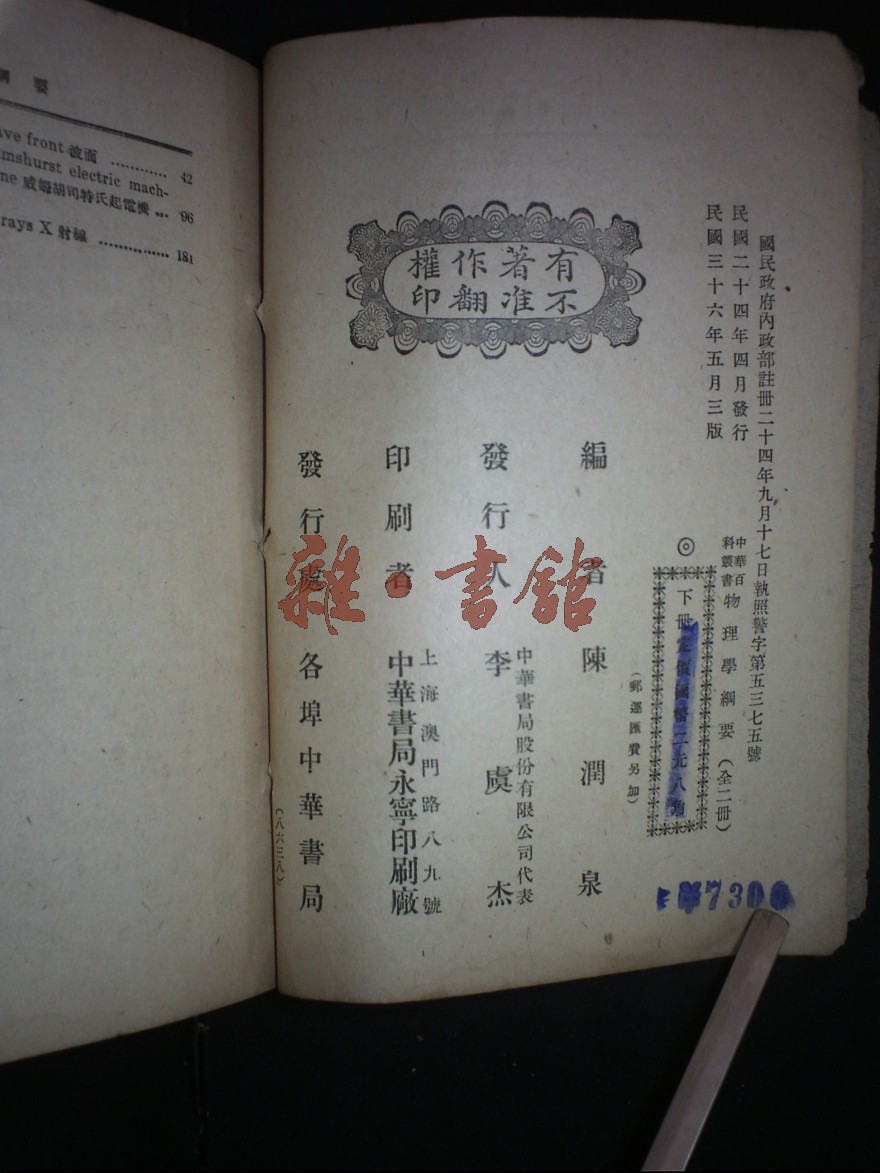 要
ave front 波面 ………… 42
mshurst electric mach-
ne 威姆胡司特氏起電機 … 96
rays X 射線 …………… 181
國民政府內政部註冊二十四年九月十七日執照警字第五三七五號
民國二十四年四月發行
民國三十六年五月三版
有不著准作翻權印
中華百科叢書
物理學綱要（全二冊）
◎
下冊定價國幣二元八角
（郵運匯費另加）
編者 陳潤泉
中華書局股份有限公司代表
發行人 李虞杰
上海澳門路八九號
印刷者 中華書局永寧印刷廠
發行處 各埠中華書局
（八六三八）
雜·書館
7300